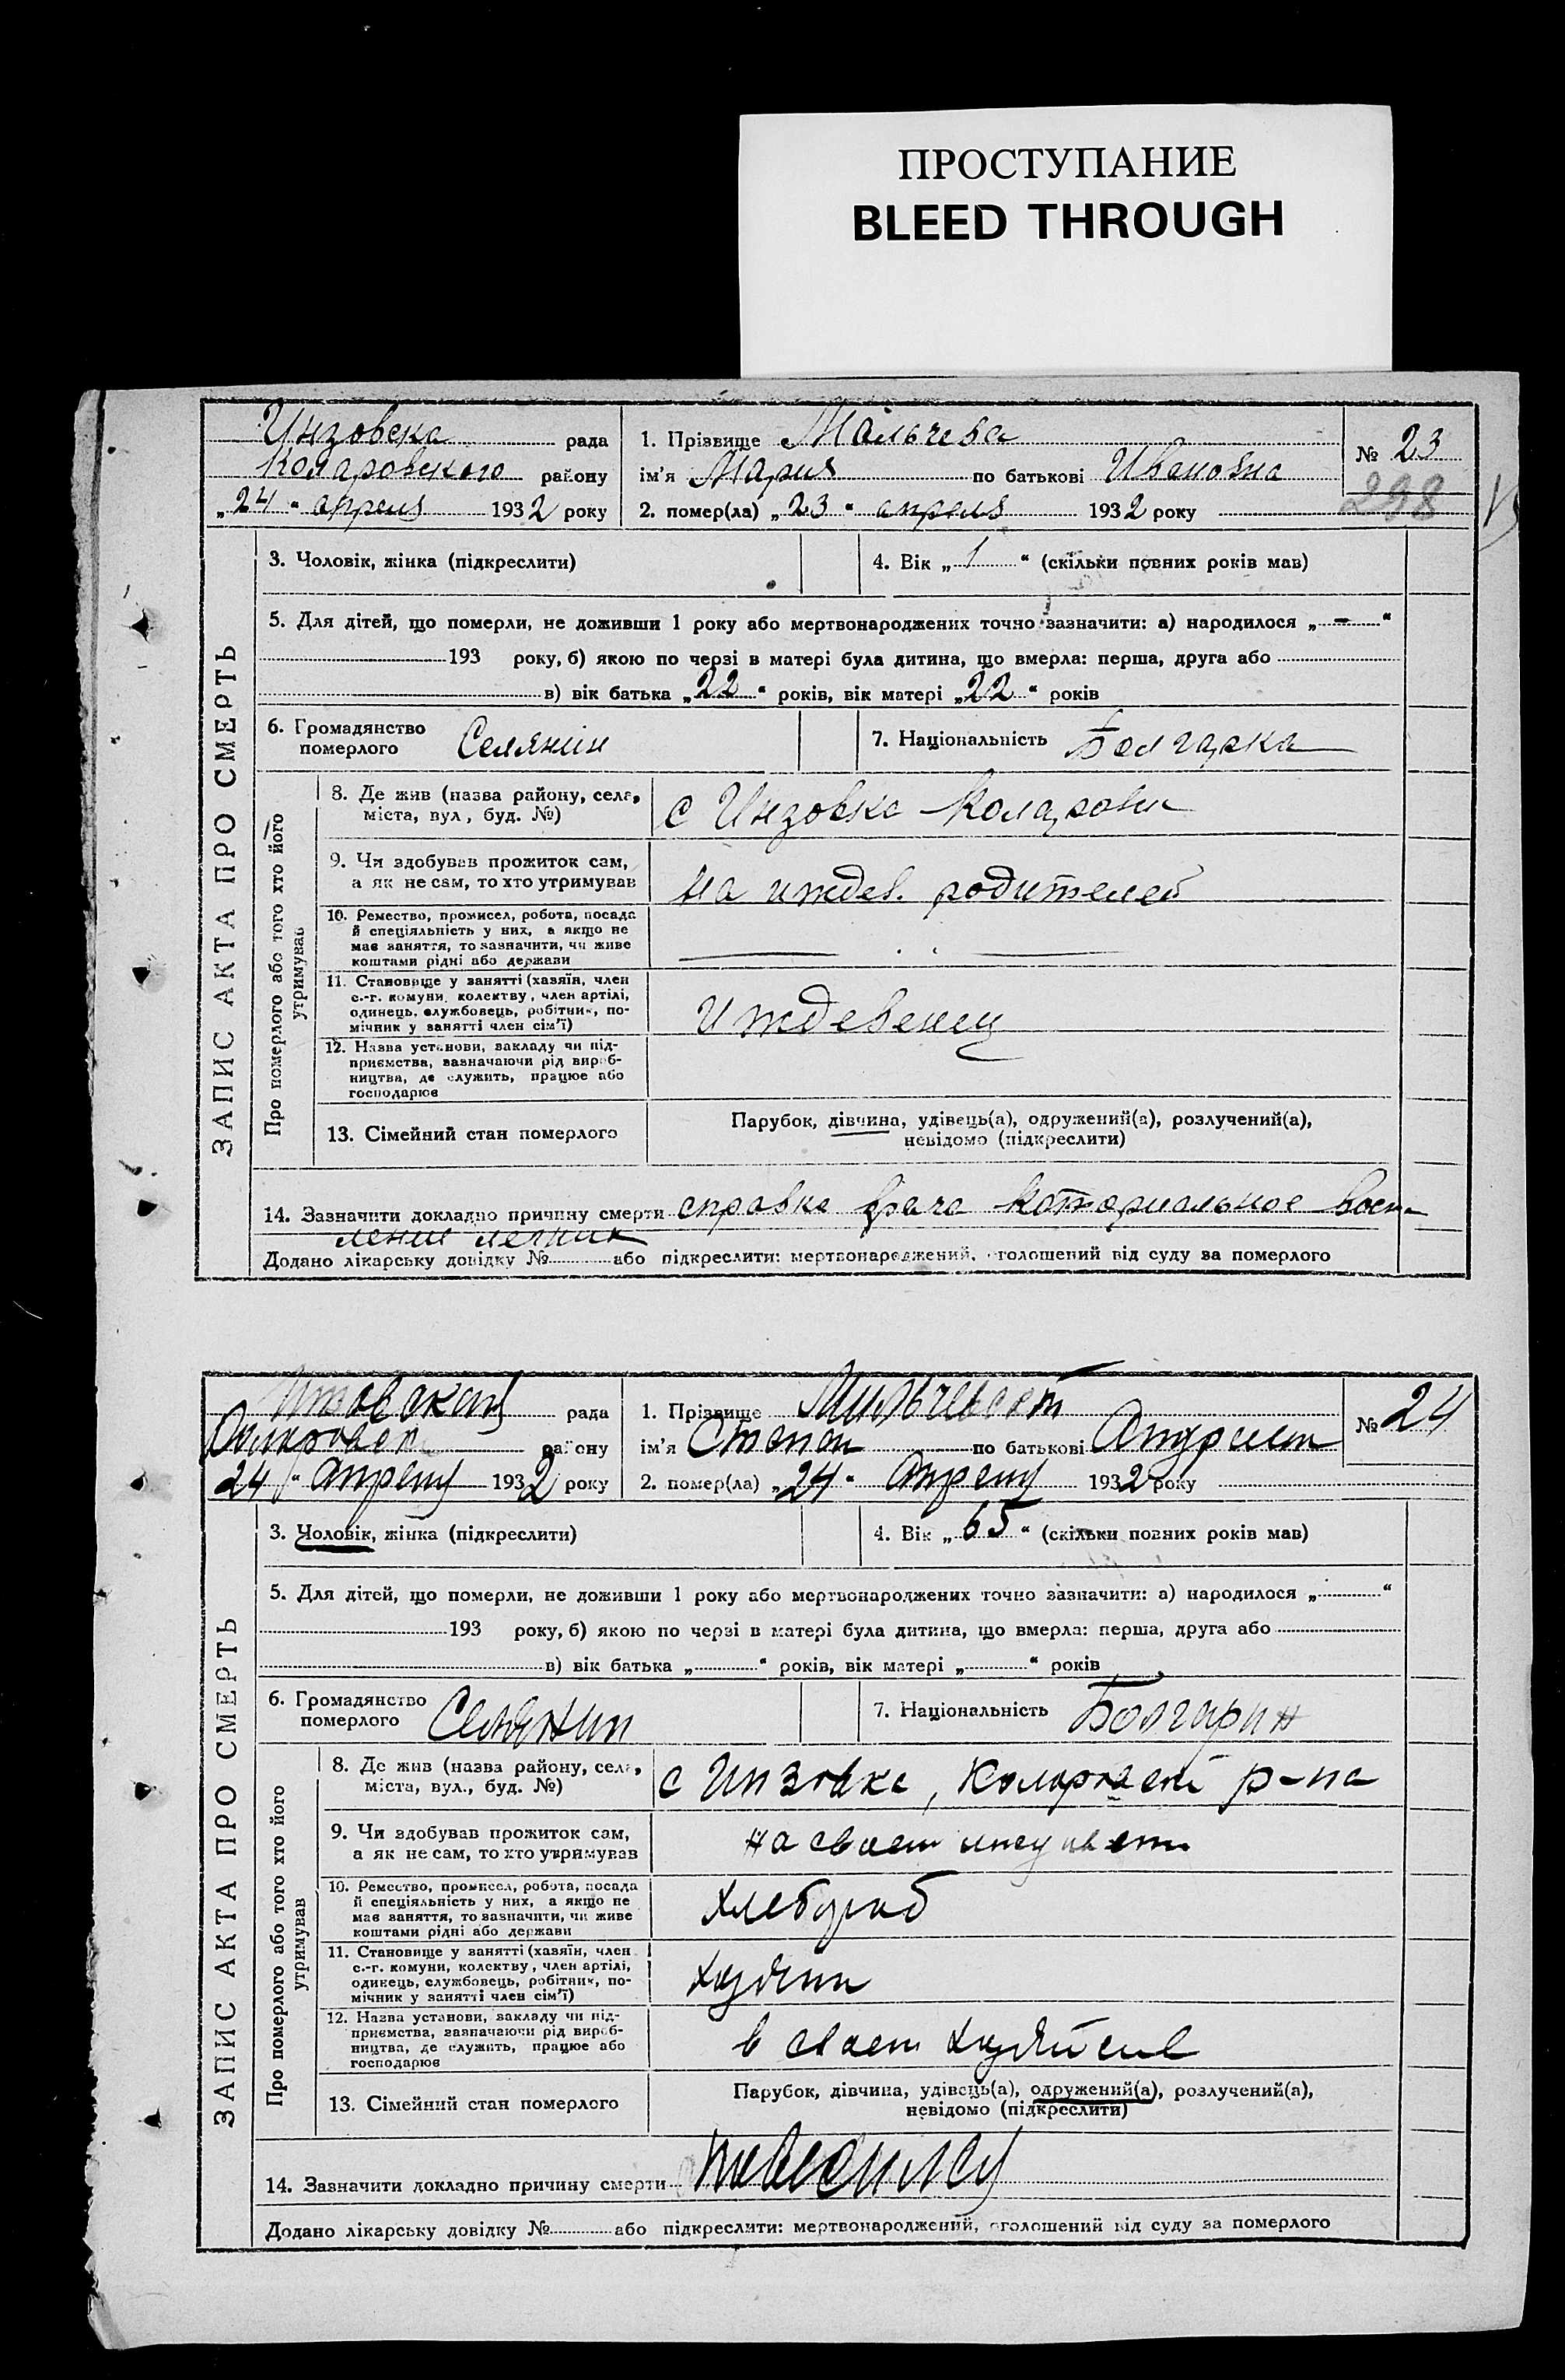 ПРОСТУПАНИЕ
BLEED THROUGH
Инзовска рада
Коларовского району
„24“ апреля 1932 року
1. Прізвище Мальчева
ім'я Мария по батькові Ивановна
2. помер(ла) „23“ апреля 1932 року
№ 23
298
ЗАПИС АКТА ПРО СМЕРТЬ
3. Чоловік, жінка (підкреслити)
4. Вік „1“ (скільки повних років мав)
5. Для дітей, що померли, не доживши 1 року або мертвонароджених точно зазначити: а) народилося „-“
193 року, б) якою по черзі в матері була дитина, що вмерла: перша, друга або
в) вік батька „22“ років, вік матері „22“ років
6. Громадянство померлого Селянин
7. Національність Болгарка
Про померлого або того хто його утримував
8. Де жив (назва району, села,
міста, вул., буд. №)
с Инзовка Коларовск
9. Чи здобував прожиток сам,
а як не сам, то хто утримував
на иждев. родителей
10. Ремество, промисел, робота, посада
й спеціяльність у них, а якщо не
має заняття, то зазначити, чи живе
коштами рідні або держави
11. Становище у занятті (хазяїн, член
с.-г. комуни, колектву, член артілі,
одинець, службовець, робітник, по-
мічник у занятті член сім'ї)
Иждевенец
12. Назва установи, закладу чи під-
приємства, зазначаючи рід вироб-
ництва, де служить, працює або
господарює
13. Сімейний стан померлого
Парубок, дівчина, удівець(а), одружений(а), розлучений(а),
невідомо (підкреслити)
14. Зазначити докладно причину смерти справка врача воспа-
ление легких
Додано лікарську довідку № або підкреслити: мертвонароджений, оголошений від суду за померлого
рада
району
24 “ апреля 1932 року
1. Прізвище
ім'я Степан по батькові
2. помер(ла) „24“ апреля 1932 року
№ 24
ЗАПИС АКТА ПРО СМЕРТЬ
3. Чоловік, жінка (підкреслити)
4. Вік „65“ (скільки повних років мав)
5. Для дітей, що померли, не доживши 1 року або мертвонароджених точно зазначити: а) народилося „ “
193 року, б) якою по черзі в матері була дитина, що вмерла: перша, друга або
в) вік батька „ “ років, вік матері „ “ років
6. Громадянство померлого Селянин
7. Національність Болгарин
Про померлого або того хто його утримував
8. Де жив (назва району, села,
міста, вул., буд. №)
с Инзовка, р-на
9. Чи здобував прожиток сам,
а як не сам, то хто утримував
на своем
10. Ремество, промисел, робота, посада
й спеціяльність у них, а якщо не
має заняття, то зазначити, чи живе
коштами рідні або держави
Хлебороб
11. Становище у занятті (хазяїн, член
с.-г. комуни, колектву, член артілі,
одинець, службовець, робітник, по-
мічник у занятті член сім'ї)
Хозяин
12. Назва установи, закладу чи під-
приємства, зазначаючи рід вироб-
ництва, де служить, працює або
господарює
в своем хозяйстве
13. Сімейний стан померлого
Парубок, дівчина, удівець(а), одружений(а), розлучений(а),
невідомо (підкреслити)
14. Зазначити докладно причину смерти повесился
Додано лікарську довідку № або підкреслити: мертвонароджений, оголошений від суду за померлого